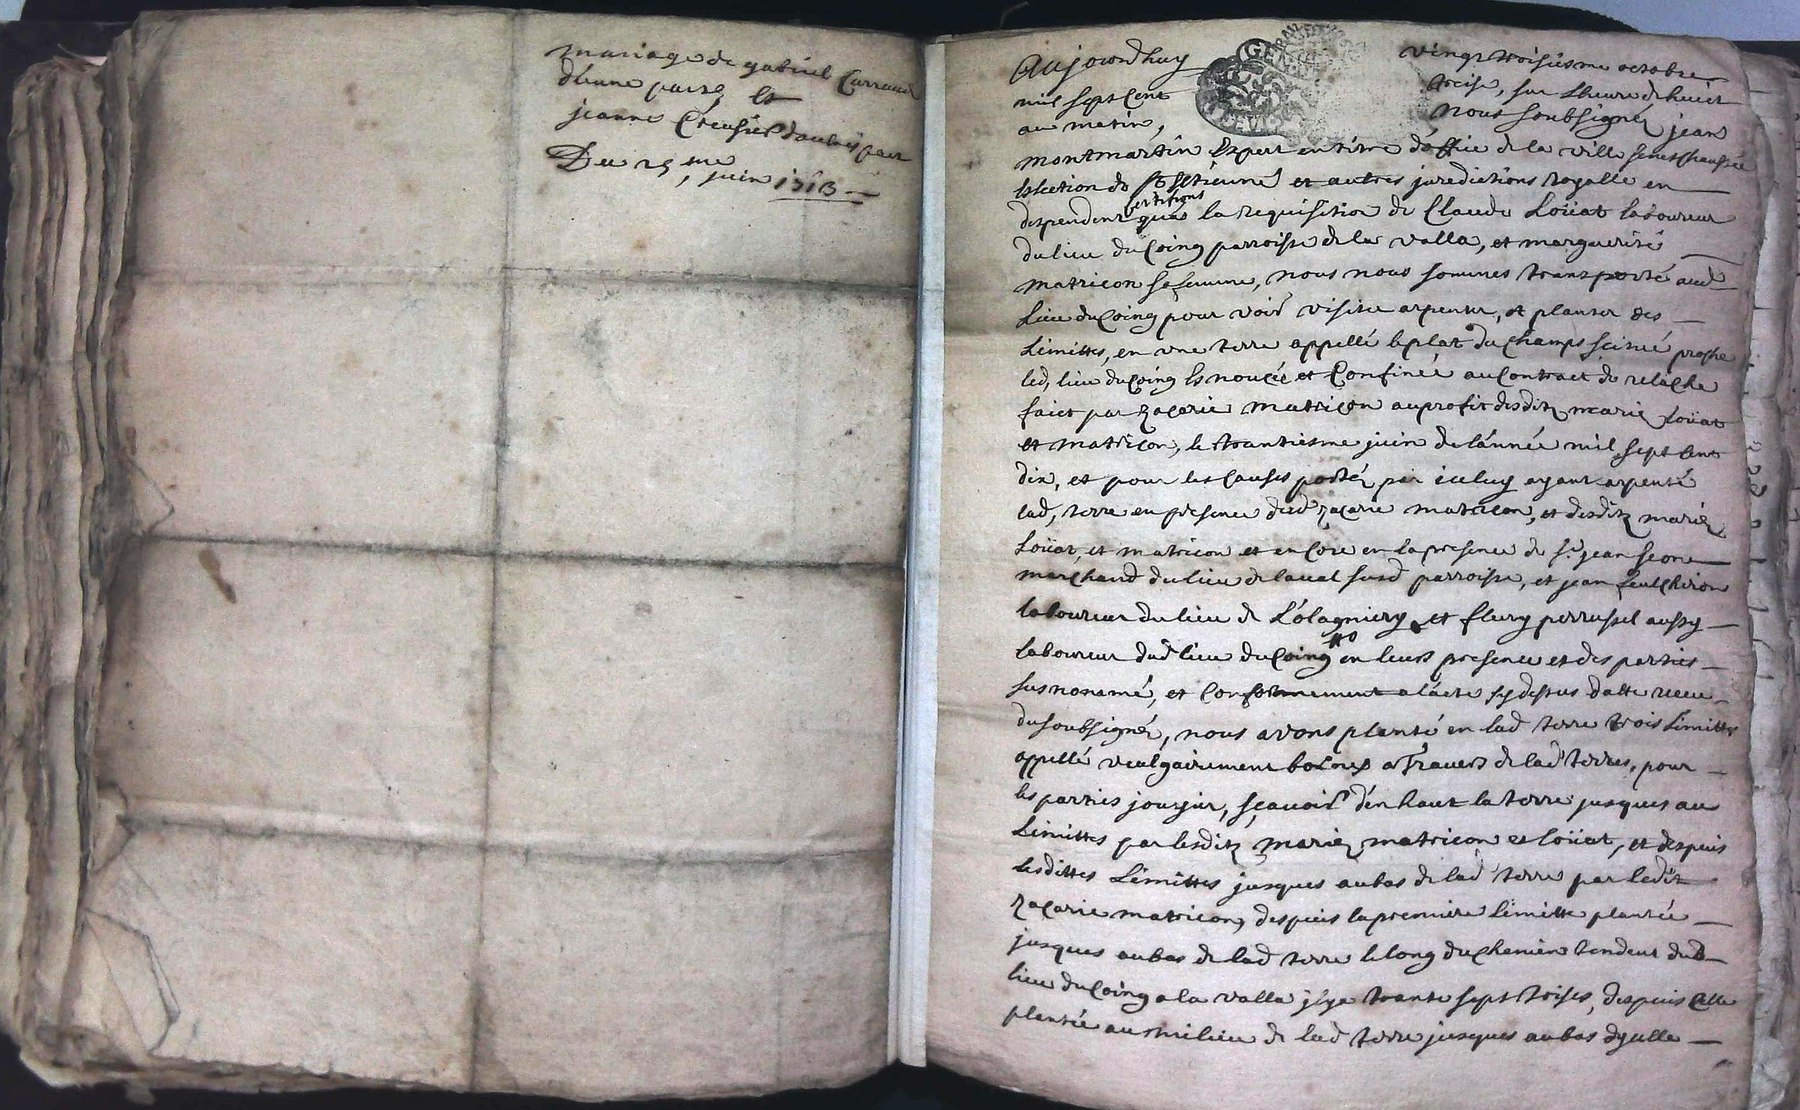 mariage de gabriel Carraud
d'une part, et
jeanne Creusier d'autre part
Du 25 eme, juin 1713
Aujourdhuy vingt troisiesme octobre
mil sept cent treise, sur l'heure de huict
au matin, nous soubsignez jean
montmartin Expert en titre d'office de la ville senechaussée
Eslection de st Estienne et autres juredictions Royalle en
despendent certifions qua la requisition de Claude Loüat laboureur
du lieu du Coing parroisse de la valla, et marguerite
matricon sa femme, nous nous sommes transporté aud
Lieu du Coing pour voir visiter arpenter, et planter des
Limittes, en une terre appellé le plat du Champs scitué proche
led, lieu du Coing Esnoncée et Confinée au Contract de relache
faict par Zacarie matricon au profit desditz mariez Loüat
et matricon, le trantiesme juin de l'année mil sept cent
dix, et pour les Causes portéz par iceluy ayant arpenté
lad, terre en presence dud Zacarie matricon, et desditz mariez
Loüat, et matricon et encore en la presence de sr. jean
marchand du lieu de laval susd parroisse, et jean
laboureur du lieu de L'olagniery et fleury perrussel aussy
laboureur dud lieu du Coing en leurs presence et des parties
susnommé, et Conformement a l'acte sy dessus datte receu
du soubsigné, nous avons planté en lad terre trois Limittes
appellé vulgairement bornes a Travers de lad terres, pour
les parties jouyir, scavoir d'en haut la terre jusques au
Limittes par lesditz mariez matricon et loüat, et despuis
lesdittes Limittes jusques au bas de lad terre par ledit
Zacarie matricon, despuis la premiere Limitte plantée
jusques au bas de lad terre le long du Chemin tendent dud
lieu du Coing a la valla jl y a trante sept toises, despuis Celle
plantée au milieu de lad terre jusques au bas dycelle